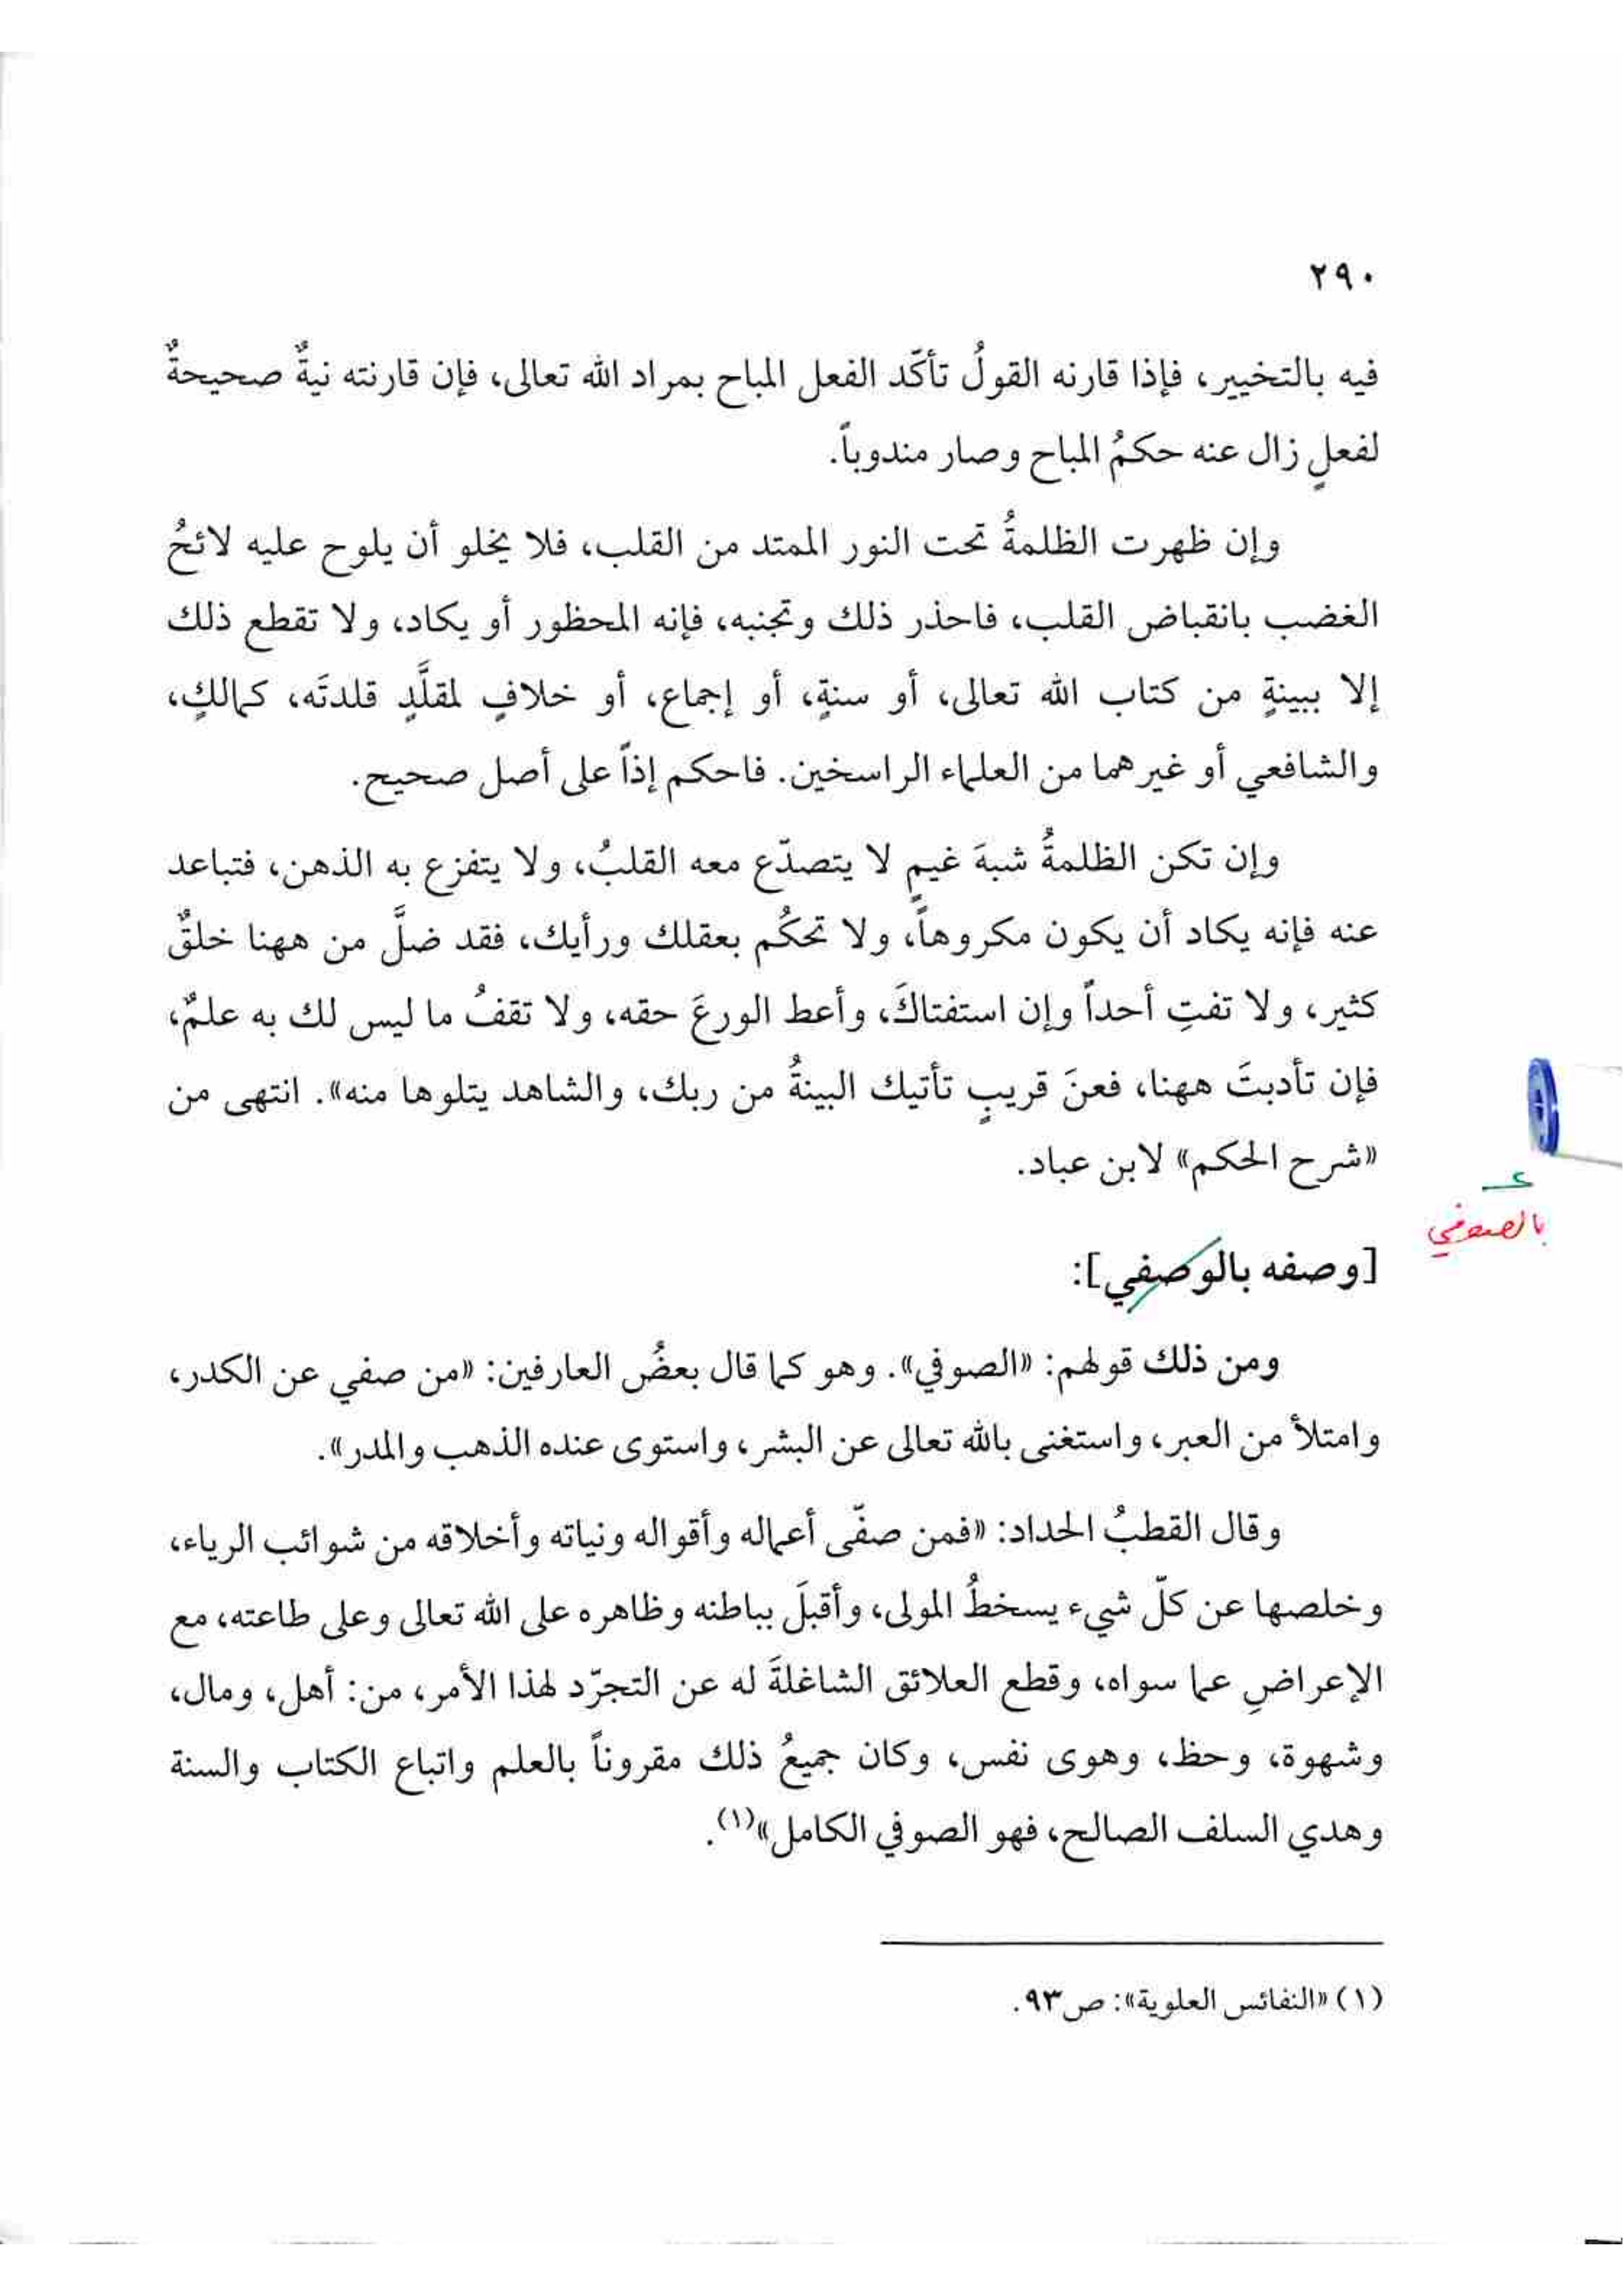 ٢٩٠
فيه بالتخيير، فإذا قارنه القولُ تأكّد الفعل المباح بمراد الله تعالى، فإن قارنته نيةٌ صحيحةٌ
لفعلٍ زال عنه حكمُ المباح وصار مندوباً.
وإن ظهرت الظلمةُ تحت النور الممتد من القلب، فلا يخلو أن يلوح عليه لائحُ
الغضب بانقباض القلب، فاحذر ذلك وتجنبه، فإنه المحظور أو يكاد، ولا تقطع ذلك
إلا ببينةٍ من كتاب الله تعالى، أو سنةٍ، أو إجماع، أو خلافٍ لمقلَّدٍ قلدتَه، كمالكٍ،
والشافعي أو غيرهما من العلماء الراسخين. فاحكم إذاً على أصل صحيح.
وإن تكن الظلمةُ شبهَ غيمٍ لا يتصدّع معه القلبُ، ولا يتفزع به الذهن، فتباعد
عنه فإنه يكاد أن يكون مكروهاً، ولا تحكُم بعقلك ورأيك، فقد ضلَّ من ههنا خلقٌ
كثير، ولا تفتِ أحداً وإن استفتاكَ، وأعط الورعَ حقه، ولا تقفُ ما ليس لك به علمٌ،
فإن تأدبتَ ههنا، فعنَ قريبٍ تأتيك البينةُ من ربك، والشاهد يتلوها منه». انتهى من
«شرح الحكم» لابن عباد.
بالصوفي
[وصفه بالوصفي]:
ومن ذلك قولهم: «الصوفي». وهو كما قال بعضُ العارفين: «من صفي عن الكدر،
وامتلأ من العبر، واستغنى بالله تعالى عن البشر، واستوى عنده الذهب والمدر».
وقال القطبُ الحداد: «فمن صفّى أعماله وأقواله ونياته وأخلاقه من شوائب الرياء،
وخلصها عن كلّ شيء يسخطُ المولى، وأقبلَ بباطنه وظاهره على الله تعالى وعلى طاعته، مع
الإعراضِ عما سواه، وقطع العلائق الشاغلةَ له عن التجرّد لهذا الأمر، من: أهل، ومال،
وشهوة، وحظ، وهوى نفس، وكان جميعُ ذلك مقروناً بالعلم واتباع الكتاب والسنة
وهدي السلف الصالح، فهو الصوفي الكامل»(١).
(١) «النفائس العلوية»: ص٩٣.